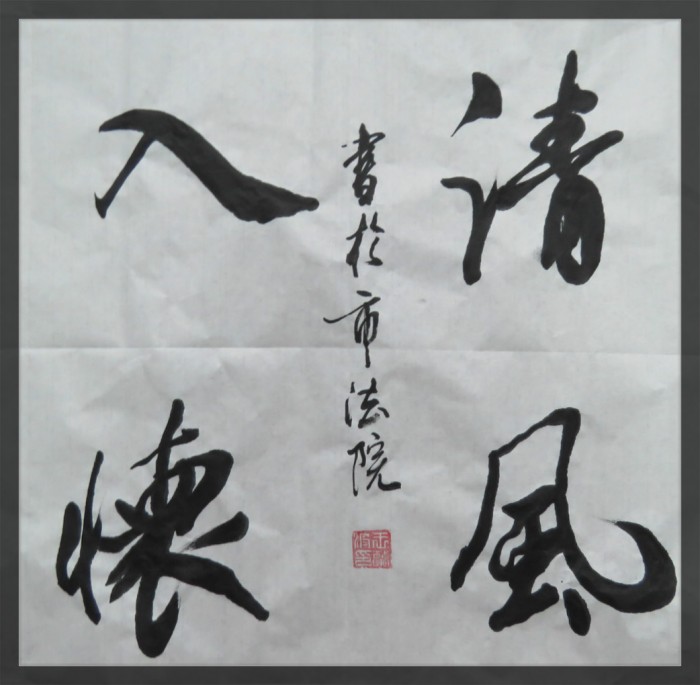 清風
入懷
書於市法院